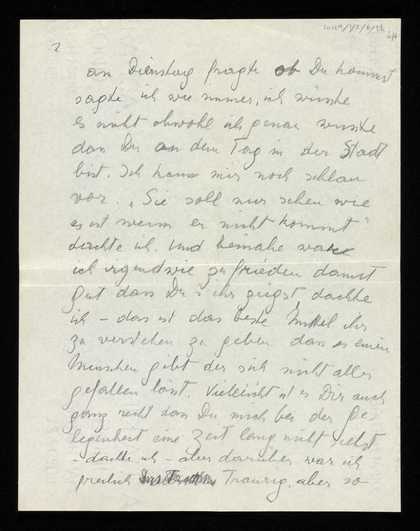 2
an Dienstag fragte ob Du kommst
sagte ich wie immer, ich wüsste
es nicht obwohl ich genau wusste
dan Du an dem Tag in der Stadt
bist. Ich kam mir noch schlau
vor. „Sie soll nur sehen wie
es ist wenn er nicht kommt"
dachte ich. Und beinahe war
ich irgendwie zufrieden damit
gut dan Du's ihr zeigst, dachte
ich – das ist das beste Mittel ihr
zu verstehen zu geben dan es einen
Menschen gibt der sich nicht alles
gefallen lässt. Vielleicht ist es Dir auch
ganz recht dan Du mich bei der Ge-
legenheit eine Zeit lang nicht siehst
– dachte ich – aber darüber war ich
freilich traurig, aber so